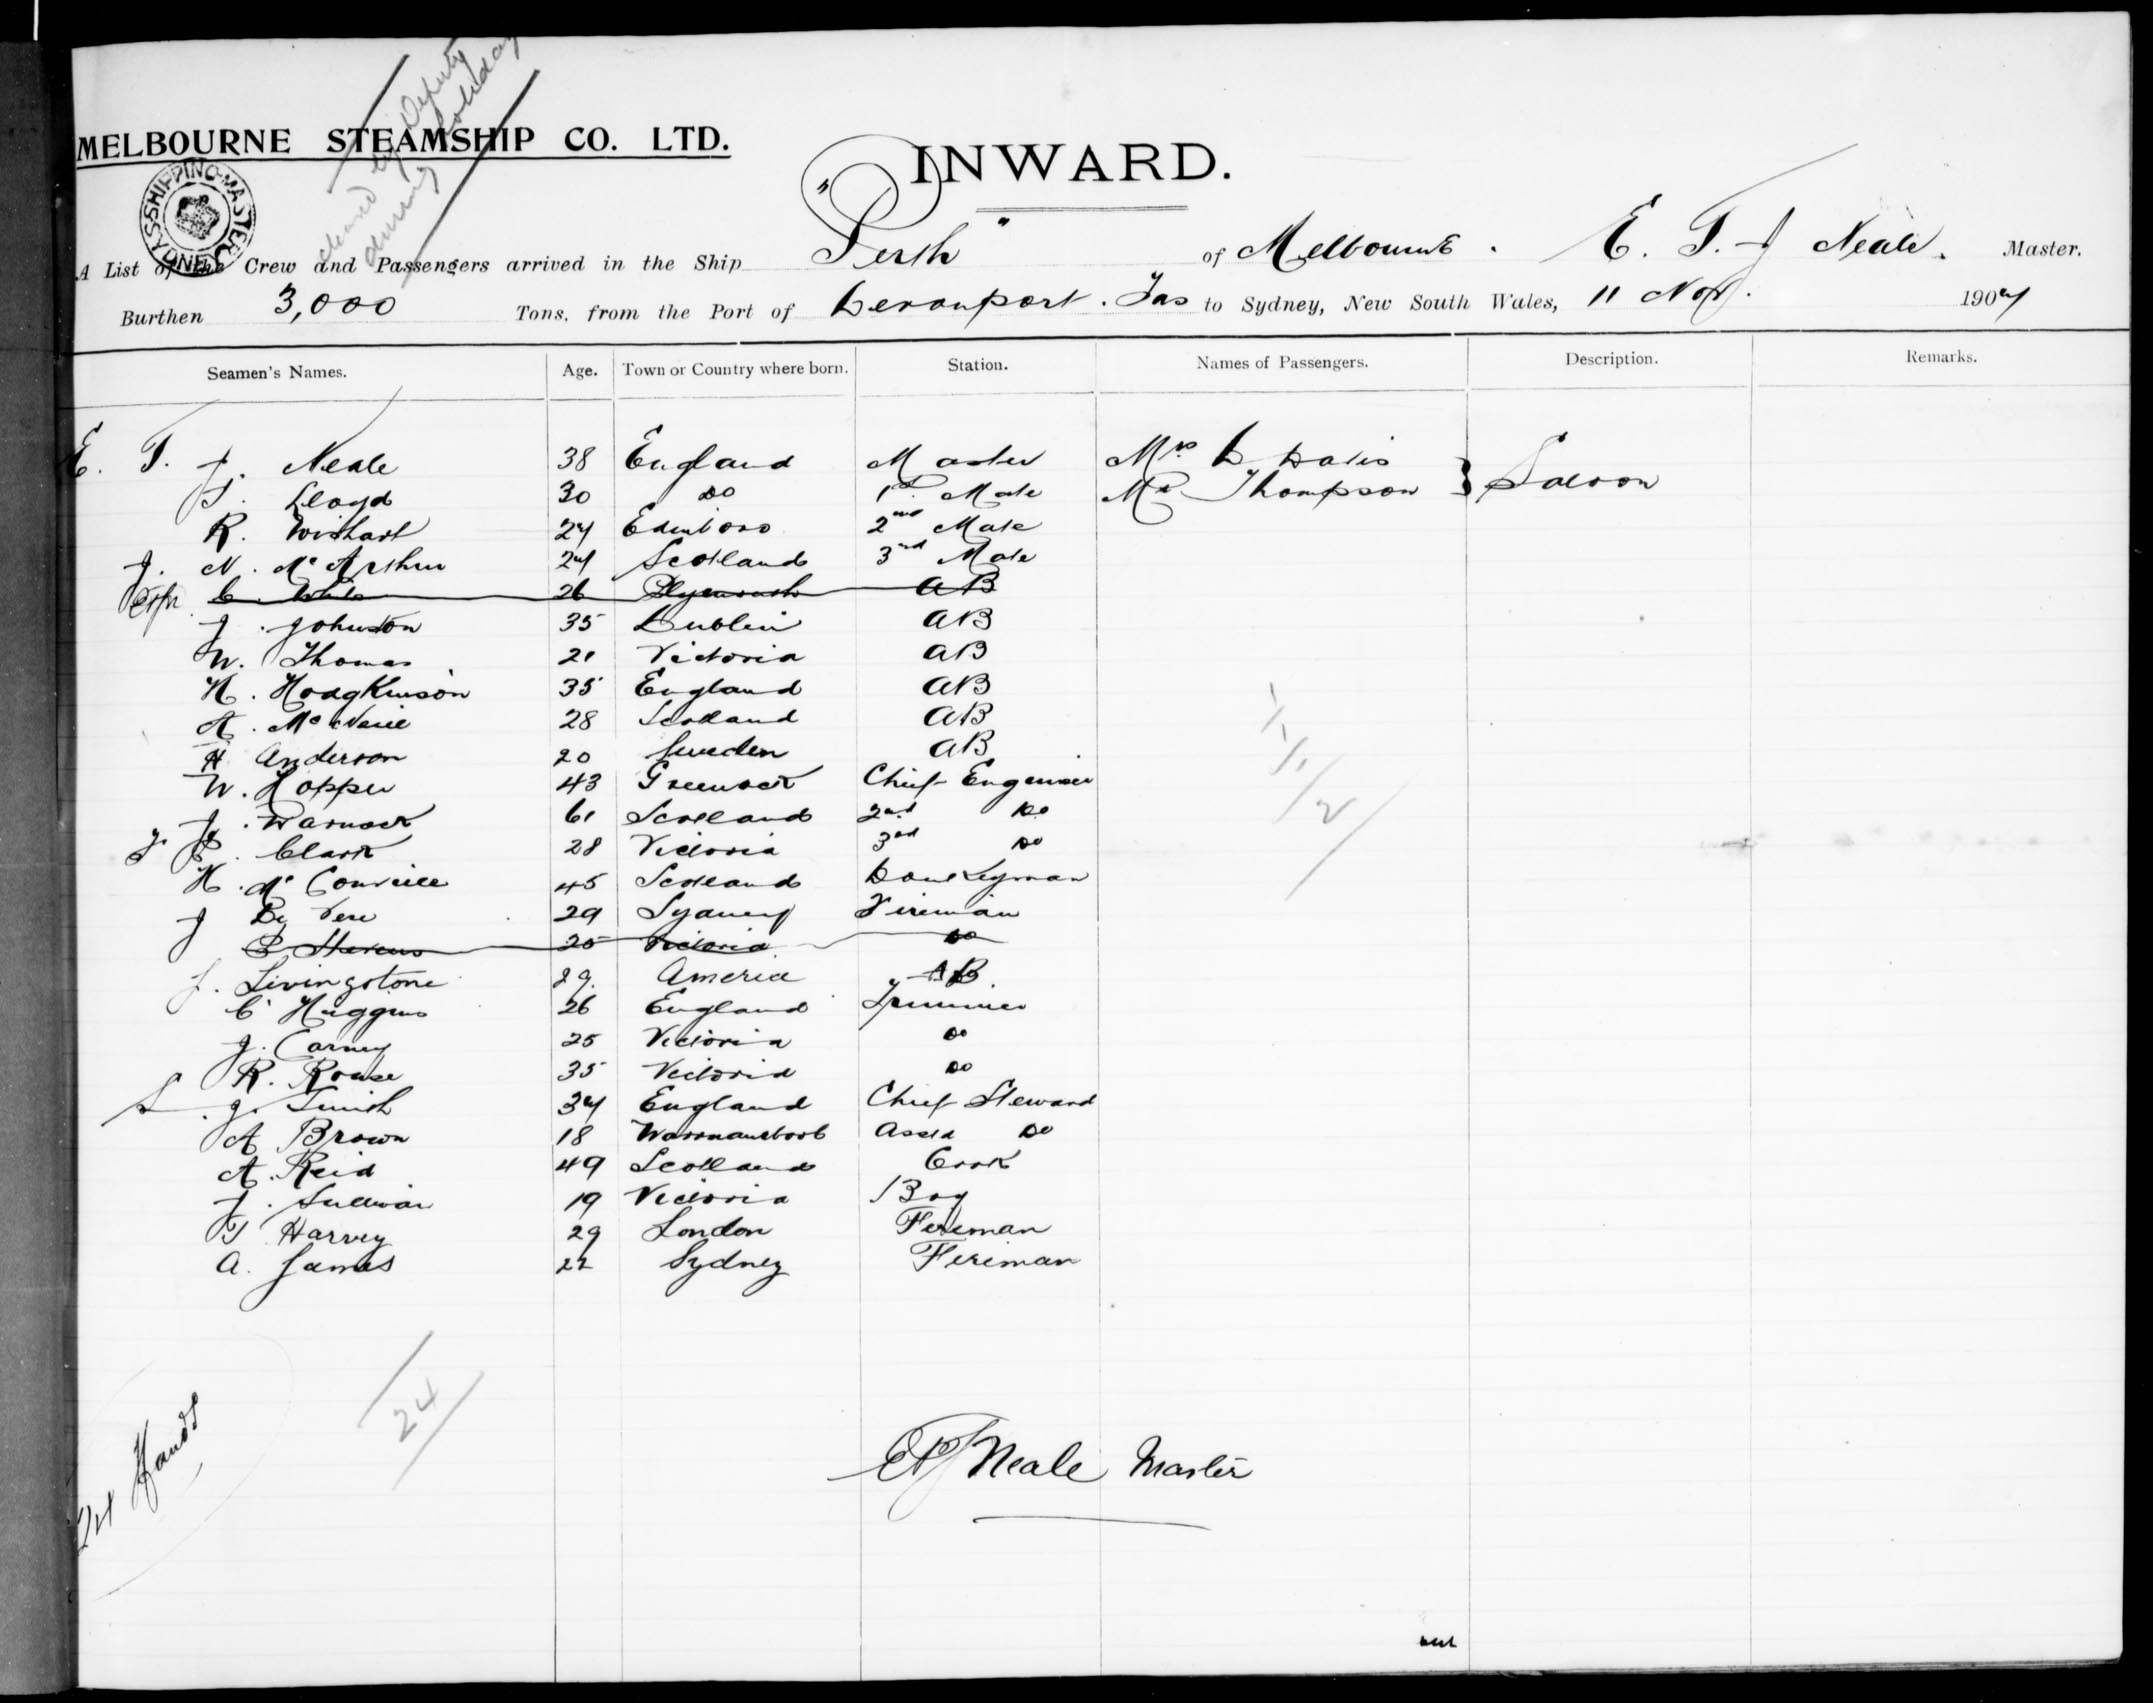 cleared by Deputy
during holiday
MELBOURNE STEAMSHIP CO. LTD.
INWARD.
SHIPPING MASTERS SYDNEY
A List of the Crew and Passengers arrived in the Ship "Perth" of Melbourne. E. T. J Neale. Master.
Burthen 3,000 Tons, from the Port of Devonport. Tas to Sydney, New South Wales, 11 Nov. 1907
Seamen's Names. Age. Town or Country where born. Station. Names of Passengers. Description. Remarks.
E. T. J. Neale 38 England Master Mrs D Davis
T. Lloyd 30 Do 1st Mate Mr Thompson } Saloon
R. Wishart 27 Edinboro 2nd Mate
J. N. McArthur 24 Scotland 3rd Mate
C. 26 Plymouth AB
J. Johnston 35 Dublin AB
W. Thomas 21 Victoria AB
H. Hodgkinson 35 England AB
A. McNeill 28 Scotland AB
H Anderson 20 Sweden AB
W. Hopper 43 Greenock Chief Engineer
J. Warnock 61 Scotland 2nd Do
Clark 28 Victoria 3rd Do
H. McConville 45 Scotland Donkeyman
J De Vere 29 Sydney Fireman
Stevens 25 Victoria Do
J. Livingstone 29. America AB
C Huggins 26 England Trimmer
J. Carney 25 Victoria Do
R. Rouse 35 Victoria Do
S. J. Smith 34 England Chief Steward
A Brown 18 Warrnambool Asst Do
A. Reid 49 Scotland Cook
J. Sullivan 19 Victoria Boy
T Harvey 29 London Fireman
A. James 22 Sydney Fireman
1/1/2
24
24 Hands
ETJ Neale Master